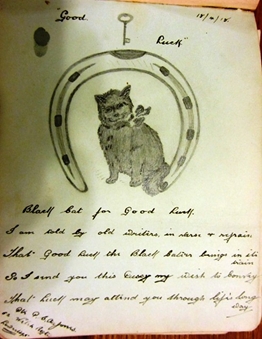 "Good
Luck"
18/4/18.
Black Cat for Good Luck.
I am told by old writers, in verse & refrain
That Good Luck the Black Cat brings in its
train
So I send you this my wish to convey
That Luck may attend you through life's long
day.